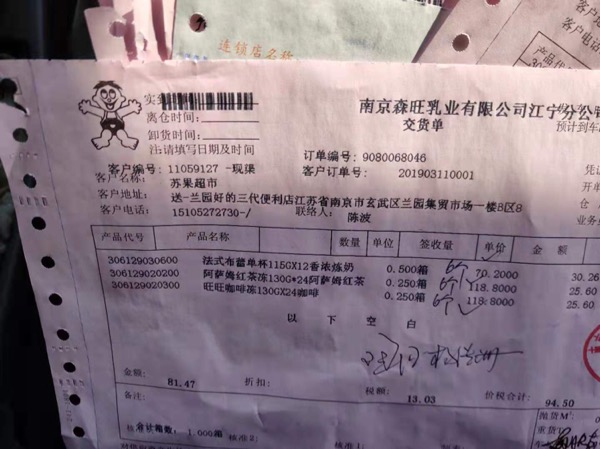 连锁店名称
客户地
客户电话
产品代
南京森旺乳业有限公司江宁分公司
交货单
预计到车
离仓时间:
卸货时间:
注:请填写日期及时间
订单编号: 9080068046
客户编号: 11059127 -现渠
客户订单号: 201903110001
客户名称: 苏果超市
客户地址: 送-兰园好的三代便利店江苏省南京市玄武区兰园集贸市场一楼B区8
客户电话: 15105272730-/ 联络人: 陈波
产品代号 产品名称 数量 单位 签收量 单价 金额
306129030600 法式布蕾单杯115GX12香浓炼奶 0.500箱 6个 70.2000 30.26
306129020200 阿萨姆红茶冻130G*24阿萨姆红茶 0.250箱 6个 118.8000 25.60
306129020300 旺旺咖啡冻130GX24咖啡 0.250箱 6个 118.8000 25.60
以下空白
金额: 81.47 折扣: 税额: 13.03 价税合计: 94.50
备注:
合计箱数: 1.000箱 核准2: 核准1: